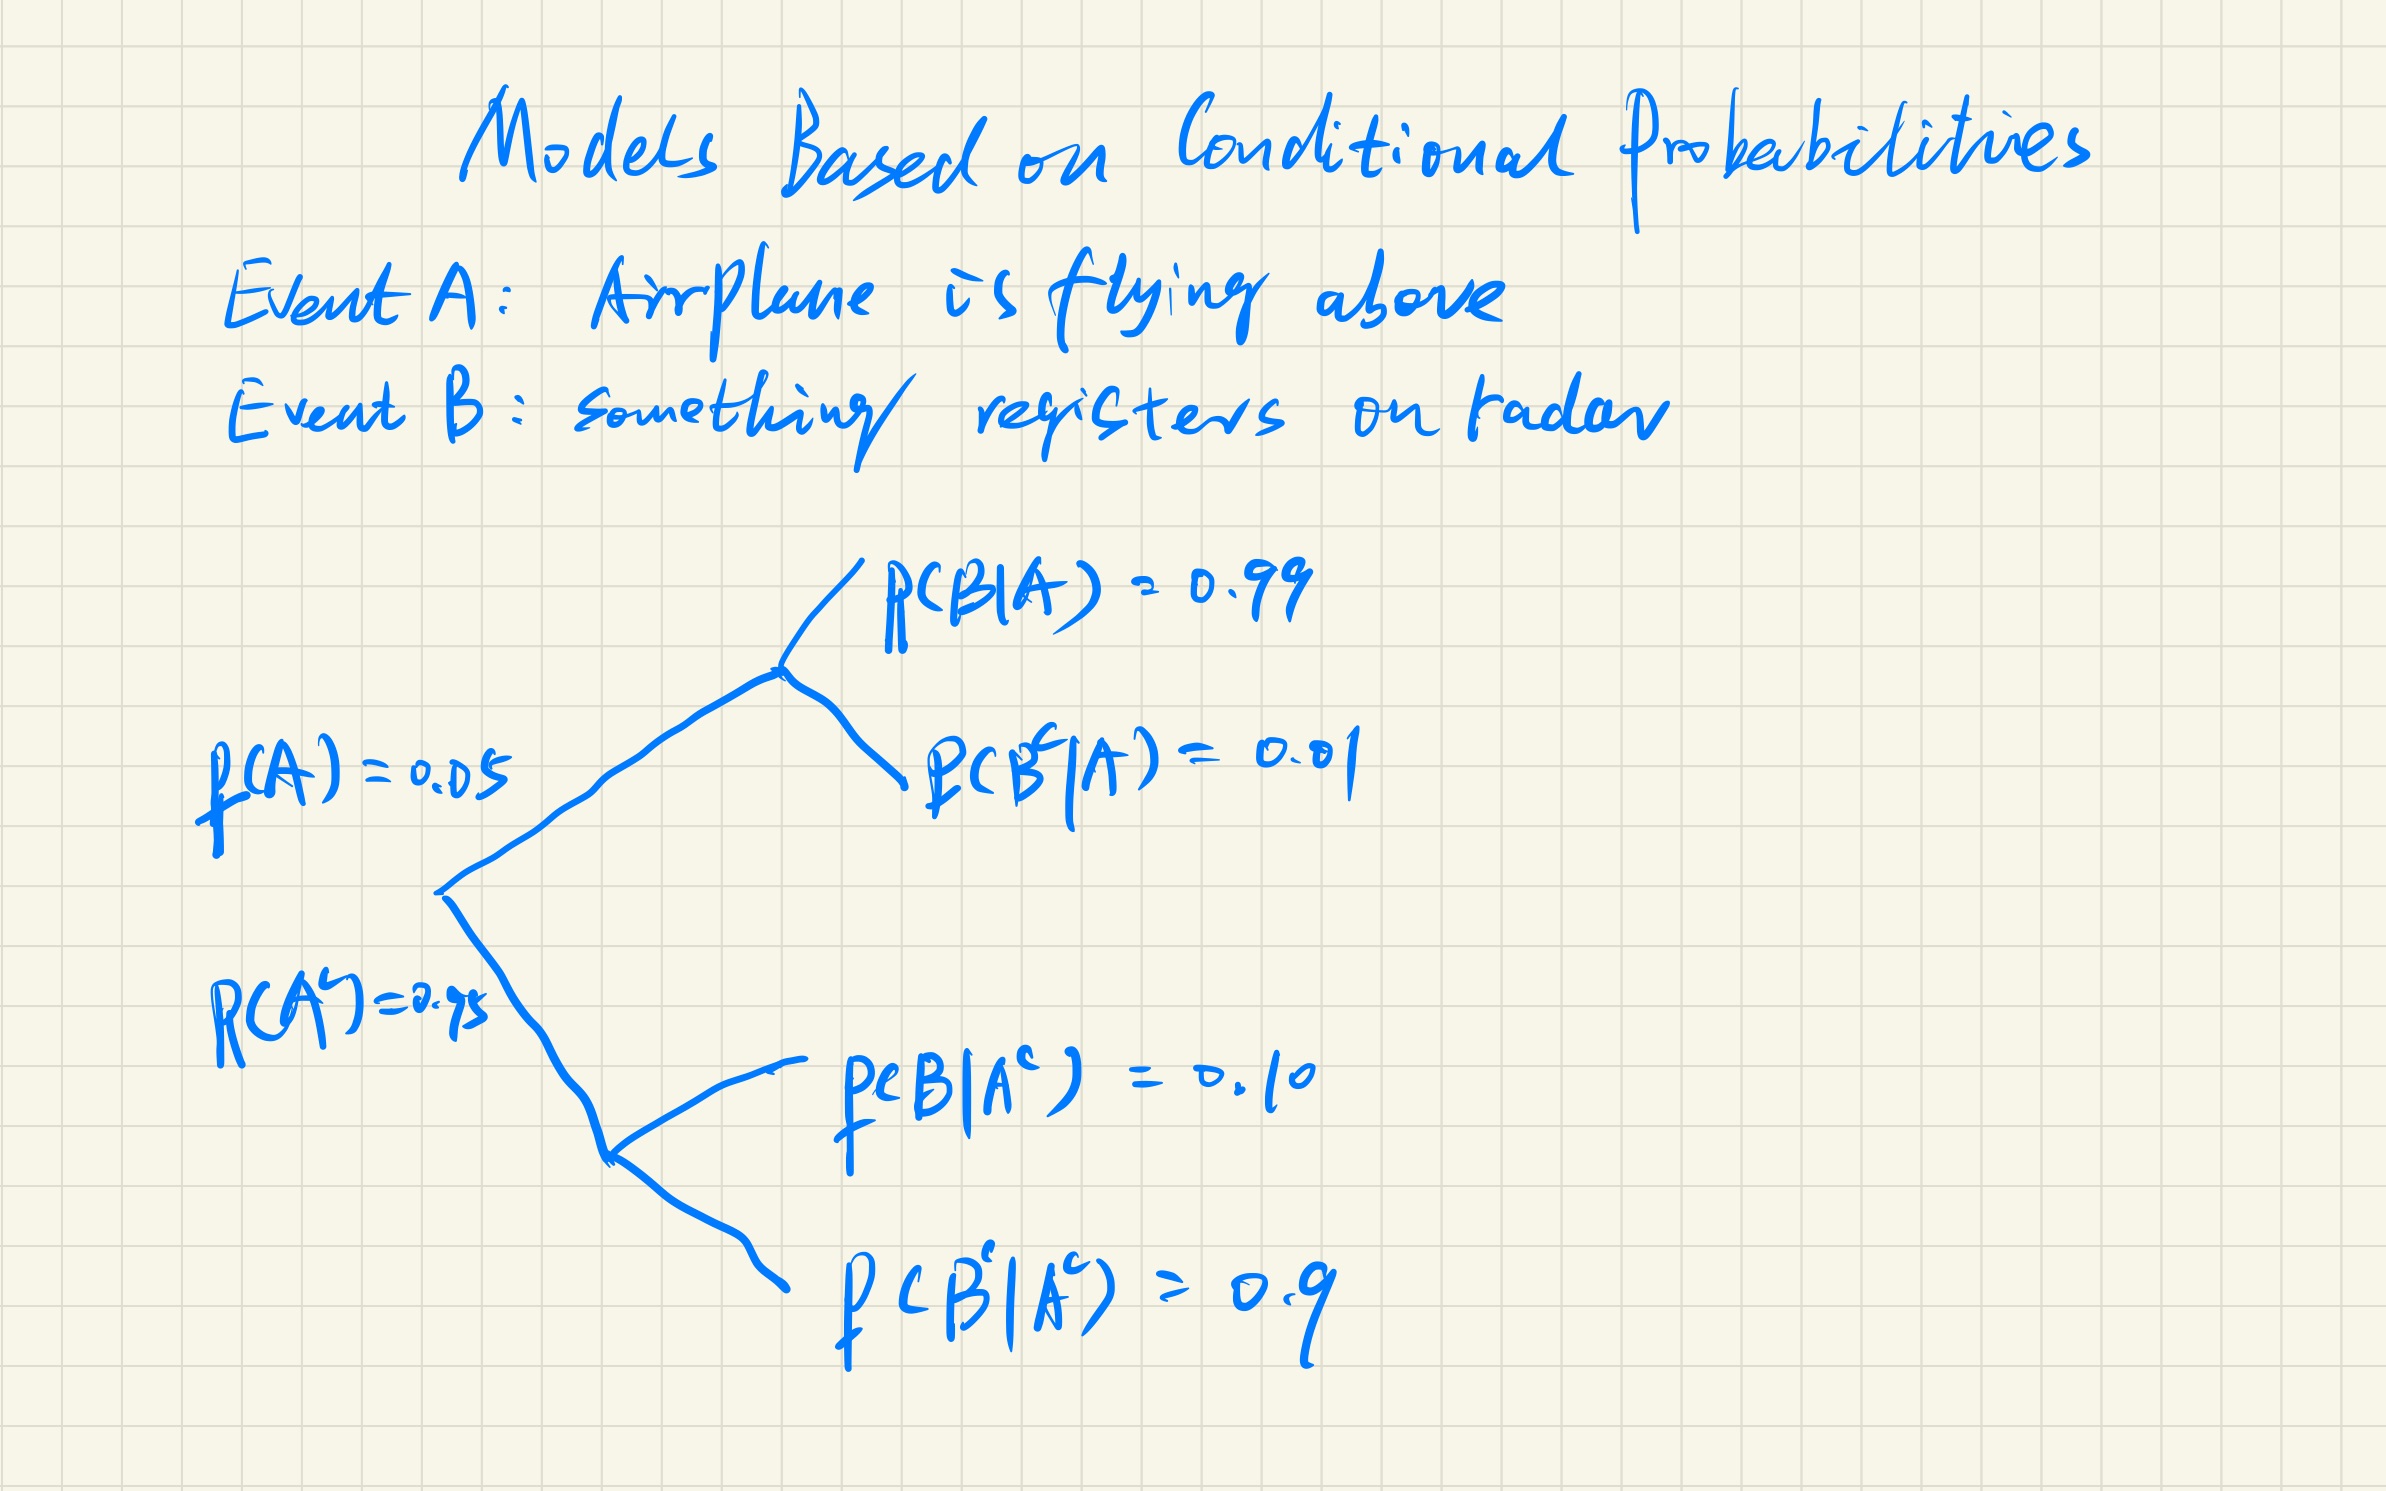 Models Based on Conditional Probabilities
Event A: Airplane is flying above
Event B: something registers on radar
P(B|A) = 0.99
P(A) = 0.05
P(Bᶜ|A) = 0.01
P(Aᶜ) = 0.95
P(B|Aᶜ) = 0.10
P(Bᶜ|Aᶜ) = 0.9